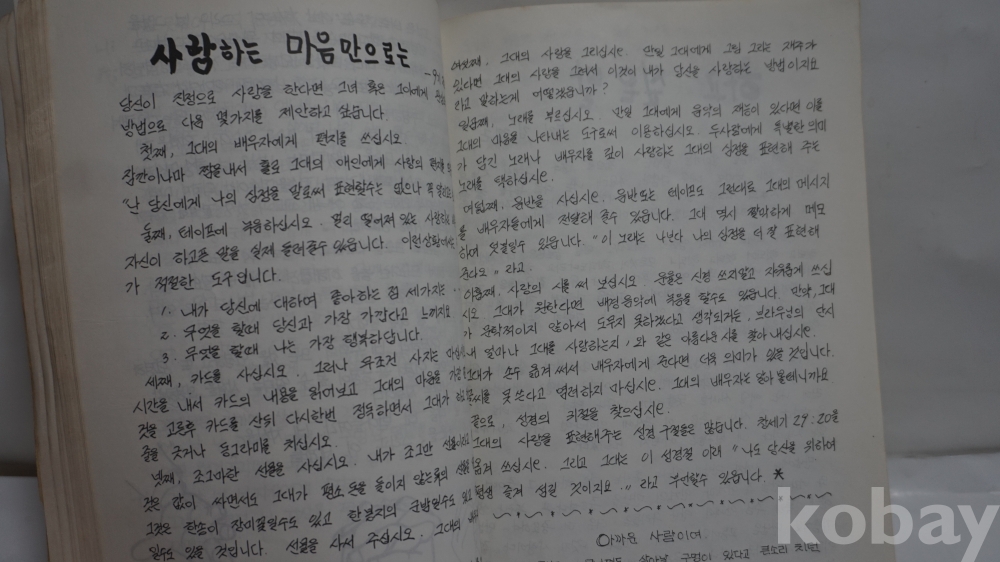 사랑하는 마음만으로는
당신이 진정으로 사랑을 한다면 그녀 혹은 그이에게
방법으로 다음 몇가지를 제안하고 싶습니다.
첫째, 그대의 배우자에게 편지를 쓰십시오.
잠깐이나마 짬을내서 홀로 그대의 애인에게 사랑의
"난 당신에게 나의 심정을 말로써 표현할수는 없으나 꼭
둘째, 테이프에 녹음하십시오. 멀리 떨어져 있는 사람에게
자신이 하고픈 말을 실제 들려줄수 있읍니다. 이런상황에서
가 적절한 도구입니다.
1. 내가 당신에 대하여 좋아하는 점 세가지는…
2. 무엇을 할때 당신과 가장 가깝다고 느껴지요
3. 무엇을 할때 나는 가장 행복하답니다.
세째, 카드를 사십시오. 그러나 무조건 사지는
시간을 내서 카드의 내용을 읽어보고 그대의 마음을
것을 고른후 카드를 산뒤 다시한번 정독하면서 그대가
줄을 긋거나 동그라미를 치십시오.
넷째, 조그마한 선물을 사십시오. 내가 조그만
것은 값이 싸면서도 그대가 평소 돈을 들이지 않는
그것은 한송이 장미꽃일수도 있고 한봉지의 군밤일수도
일수도 있을 것입니다. 선물을 사서 주십시오. 그대의
그대의 사랑을 그리십시오. 만일 그대에게 그림 그리는 재주가
있다면 그대의 사랑을 그려서 이것이 내가 당신을 사랑하는 방법이지요
라고 말하는게 어떻겠읍니까?
일곱째, 노래를 부르십시오. 만일 그대에게 음악의 재능이 있다면 이를
그대의 마음을 나타내는 도구로써 이용하십시오. 두사람에게 특별한 의미
가 담긴 노래나 배우자를 깊이 사랑하는 그대의 심정을 표현해 주는
노래를 택하십시오.
여덟째, 음반을 사십시오. 음반또는 테이프도 그런대로 그대의 메시지
를 배우자들에게 전달해 줄수 있읍니다. 그대 역시 짤막하게 메모
하여 덧붙일수 있읍니다. "이 노래는 나보다 나의 심정을 더 잘 표현해
준다오" 라고.
아홉째, 사랑의 시를 써 보십시오. 운율은 신경 쓰지말고 자유롭게 쓰십
시오. 그대가 원한다면 배경음악에 녹음을 할수도 있읍니다. 만약, 그대
가 문학적이지 않아서 도무지 못하겠다고 생각되거든, 브라우닝의 단시
"내 얼마나 그대를 사랑하는지"와 같은 아름다운 시를 찾아 내십시오.
그대가 손수 옮겨 써서 배우자에게 준다면 더욱 의미가 있을 것입니다.
글씨를 못쓴다고 염려하지 마십시오. 그대의 배우자는 알아 볼테니까요
끝으로, 성경의 귀절을 찾으십시오.
그대의 사랑을 표현해주는 성경 구절은 많습니다. 창세기 29:20을
옮겨 쓰십시오. 그리고 그대는 이 성경절 아래 "나도 당신을 위하여
평생 즐겨 섬길 것이지요.." 라고 부언할수 있읍니다. *
아까운 사람이여
kobay